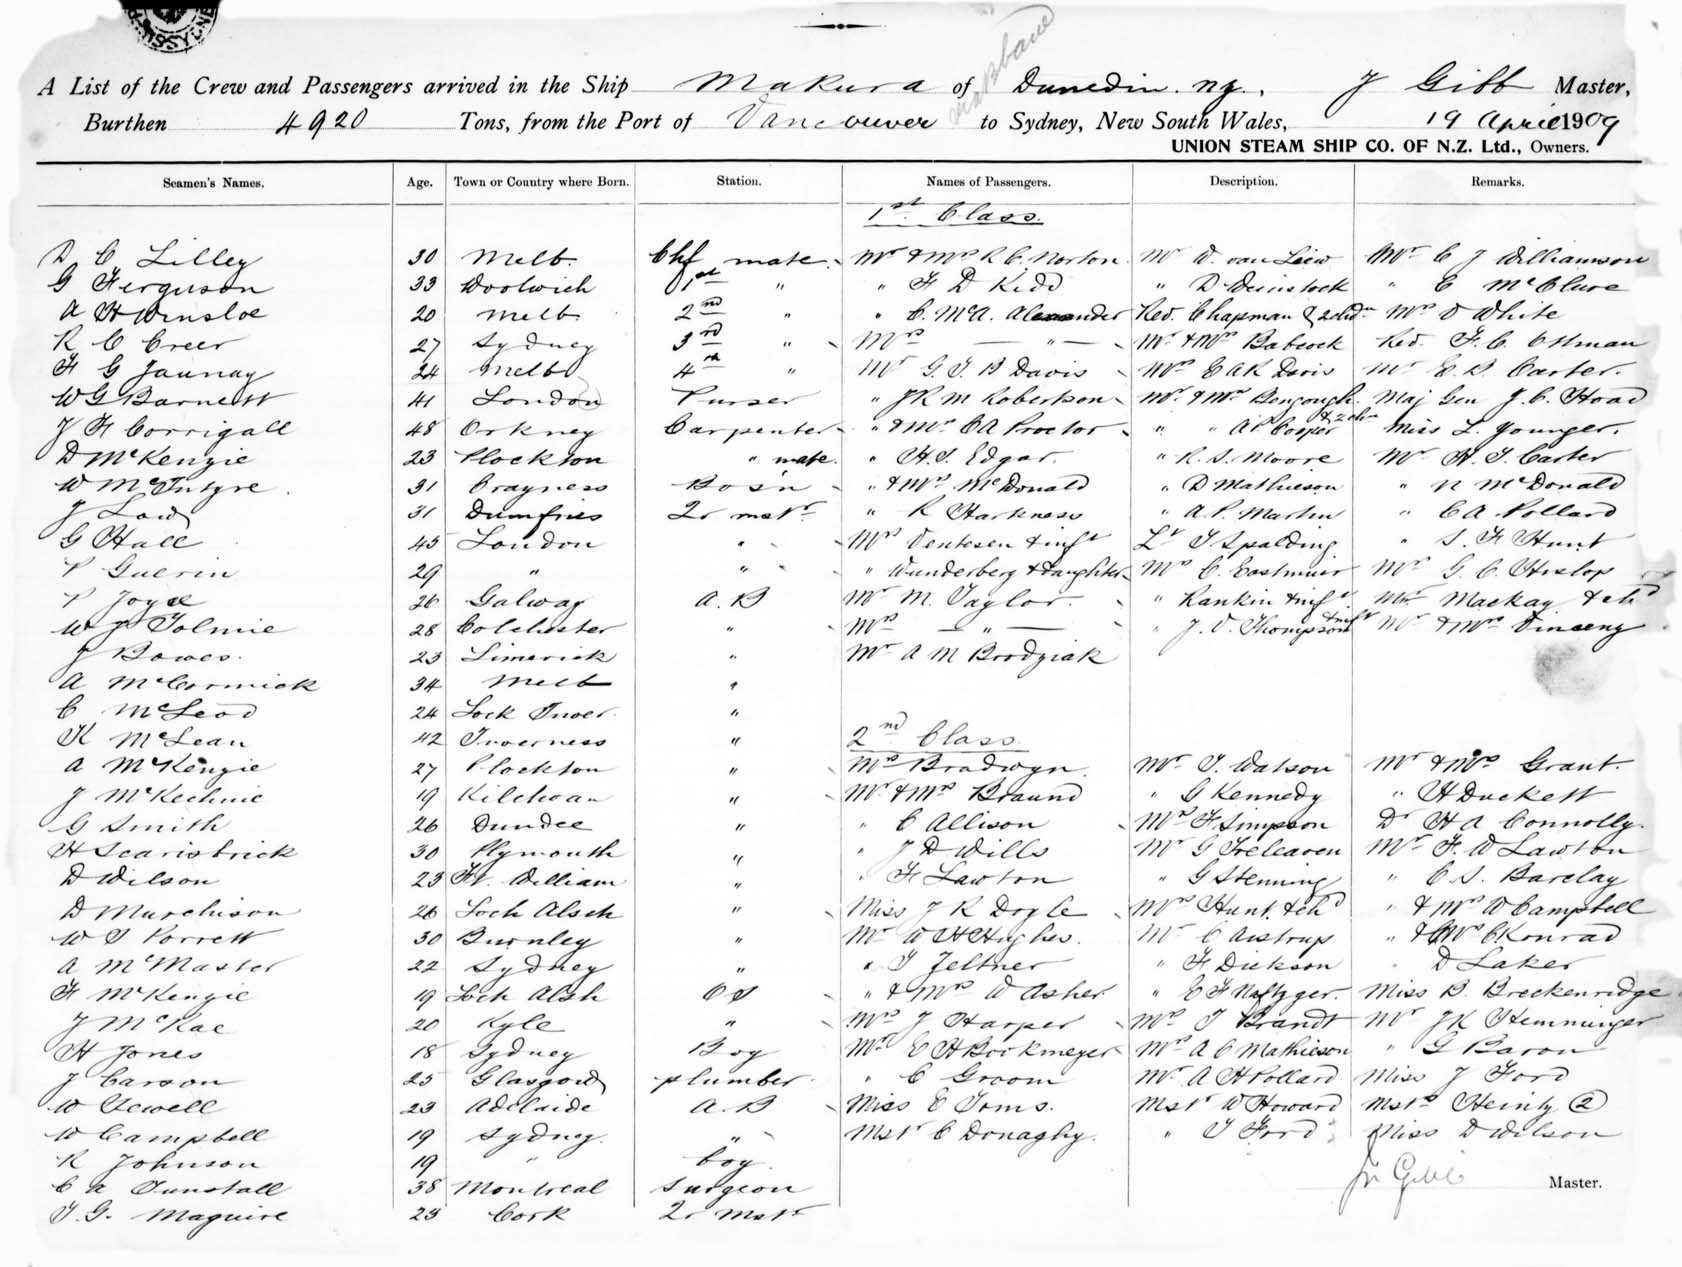 via Brisbane
A List of the Crew and Passengers arrived in the Ship Makura of Dunedin. NZ., J Gibb Master,
Burthen 4920 Tons, from the Port of Vancouver to Sydney, New South Wales, 19 April 1909
UNION STEAM SHIP CO. OF N.Z. Ltd., Owners.
Seamen's Names. Age. Town or Country where Born. Station. Names of Passengers. Description. Remarks.
1st Class.
D C Lilley 30 Melb. Chf mate Mr & Mrs R C. Norton Mr W. van Liew Mr C J Williamson
G Ferguson 33 Woolwich 1st " " F D Kidd " D Weinstock " E McClure
A H Winsloe 20 Melb. 2nd " " C. McA. Alexander Rev. Chapman & 2 chdn Mrs D White
R C Creer 27 Sydney 3rd " Mrs — " — Mr & Mrs Babcock Rev. F. C.
F G Jaunay 24 Melb 4th " Mr G. T. B Davis Mrs E A R Davis Mr E. S. Carter.
W G Barnett 41 London Purser " J R M Robertson Mr & Mrs Bengough. Maj Gen J. C. Hoad
J F Corrigall 48 Orkney Carpenter " & Mrs C A Proctor " " A P Cooper & 2 chn Miss L. Younger.
D McKenzie 23 Plockton " mate " H. S. Edgar. " R. S. Moore Mr N. T. Carter
W McIntyre. 31 Crayness Bosn " & Mrs McDonald " D Mathieson " N McDonald
J Law 31 Dumfries Qr mstr " R Harkness " A. P. Martin " C A Pollard
G Hall 45 London " Mrs Ventesen & inft Lt T Spalding " S. F Hunt
P Guerin 29 " " " Wunderberg & daughter Mrs C. Eastmuir Mrs G. C. Hislop
P Joyce 26 Galway A. B Mr M. Taylor. " Rankin & inft. Mrs Mackay & chd
W J Tolmie 28 Colchester " Mrs — " — " J. V. Thompson & inft Mr & Mrs Vincenz
J Bowes. 23 Limerick " Mr A M Brodziak
A McCormick 34 Melb "
C McLeod 24 Lock Inver. "
K McLean 42 Inverness " 2nd Class
A McKenzie 27 Plockton " Mrs Bradwyn. Mr T. Watson Mr & Mrs Grant.
J McKechnie 19 Kilchoan " Mr & Mrs Braund " G Kennedy " H Duckett
G Smith 26 Dundee " " C Allison Mrs F Simpson Dr H A Connolly.
H Scarisbrick 30 Plymouth " " J D Wills Mr G Treleaven Mr F. W Lawton
D Wilson 23 Ft. William " " F Lawton " G Stenning " C. S. Barclay
D Murchison 26 Loch Alsch " Miss J R Doyle Mrs Hunt & chd " & Mrs W Campbell
W S Porrett 30 Burnley " Mr W H Hughes. Mr C Aistrup " & Mrs C Konrad
A McMaster 22 Sydney " " T Jeltner " F Dickson " D Laker
F McKenzie 19 Loch Alsh O S " & Mrs W Asher. " E F Naftzger. Miss B. Breckenridge
J McRae 20 Kyle " Mrs J Harper Mrs T Brandt Mr J K Hemminger
H Jones 18 Sydney Boy Mr E H Bookmeyer Mrs A C Mathieson " G Baron
J Carson 25 Glasgow plumber " C Groom Mr A H Pollard Miss J Ford
W Sewell 23 Adelaide A. B Miss E Toms. Mstr W Howard Mstrs Heintz 2
W Campbell 19 Sydney. " Mstr C Donaghy. " T Ford Miss D Wilson
R Johnson 19 " boy
C A Tunstall 38 Montreal Surgeon Jn Gibb Master.
T. G. Maguire 25 Cork Qr Mstr